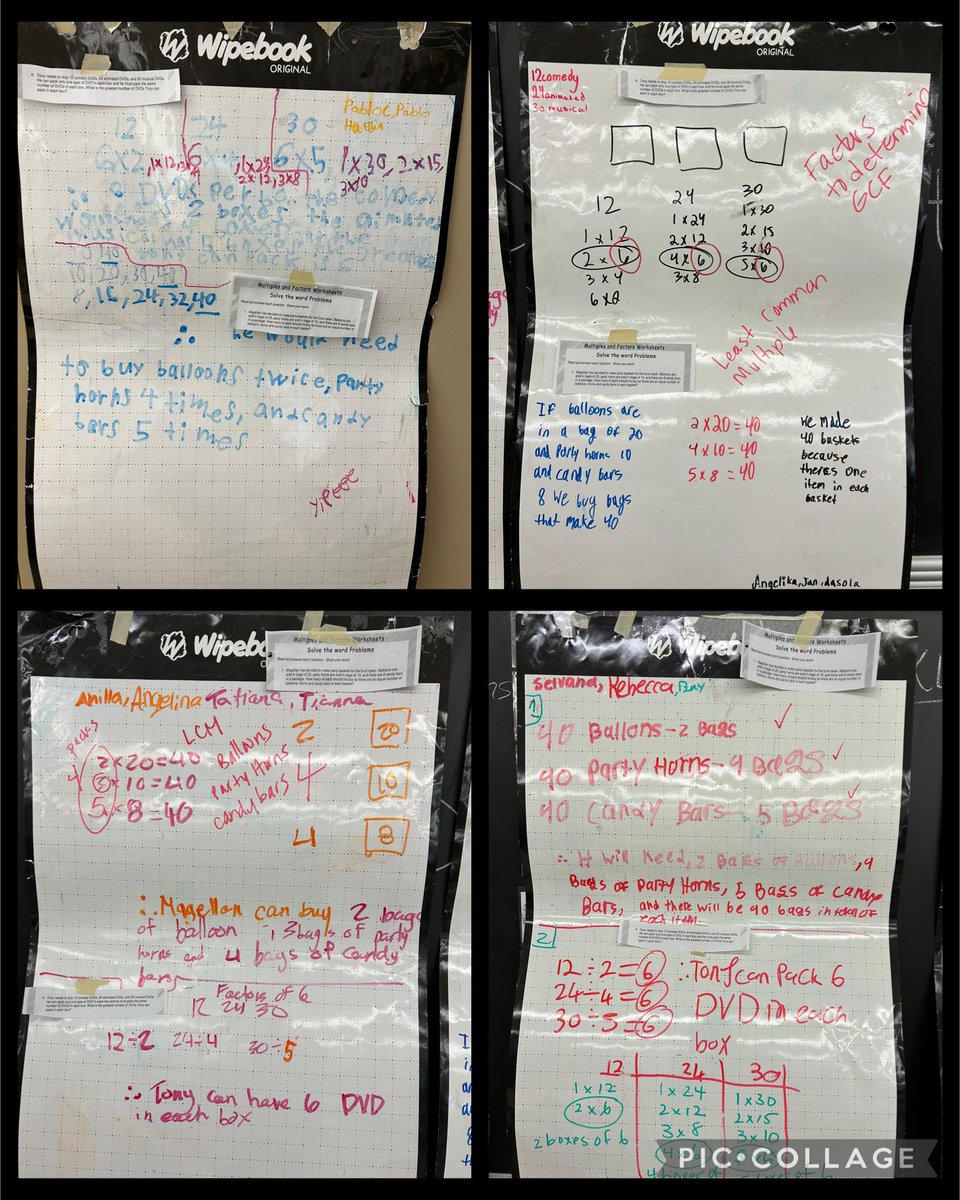 Wipebook
ORIGINAL
4. Tony needs to ship 12 comedy DVDs, 24 animated DVDs, and 30 musical DVDs.
He can pack only one type of DVD in each box and he must pack the same
number of DVDs in each box. What is the greatest number of DVDs Tony can
pack in each box?
Pablo C, Pablo
12 24 30
6x2, 1x12, 6x 1x24 6x5, 1x30, 2x15,
2x12, 3x8 3x10
10, 20, 30, 40
8, 16, 24, 32, 40
Multiples and Factors Worksheets
Solve the word Problems
Read and answer each question. Show your work!
∴ he would need
to buy balloons twice, party
horns 4 times, and candy
bars 5 times
yipeee
Wipebook
ORIGINAL
12 comedy
24 animated
30 musical
Factors
to determine
GCF
12 24 30
1 x 12 1 x 24 1 x 30
2 x 6 2 x 12 2 x 15
3 x 4 4 x 6 3 x 10
6 x 8 3 x 8 5 x 6
Least Common
Multiple
Multiples and Factors Worksheets
Solve the word Problems
Read and answer each question. Show your work!
If balloons are
in a bag of 20
and Party horns 10
and candy bars
8 we buy bags
that make 40
2 x 20 = 40
4 x 10 = 40
5 x 8 = 40
We made
40 baskets
because
theres one
item in each
basket
Angelika, Jan, dasola
Wipebook
Multiples and Factors Worksheets
Solve the word Problems
Read and answer each question. Show your work!
Anilla, Angelina Tatiana, Tianna
packs
LCM
2 x 20 = 40 Balloons 2 20
x 10 = 40 Party Horns 4 10
5 x 8 = 40 candy bars 4 8
∴ Magellon can buy 2 bags
of balloon, 3 bags of party
horns and 4 bags of candy
bars
Factors of 6
12 24 30
12÷2 24÷4 30÷5
∴ Tony can have 6 DVD
in each box
Wipeb
Multiples and Factors Worksheets
Solve the word Problems
Read and answer each question. Show your work!
Servana, Rebecca,
1
40 Ballons - 2 Bags
40 Party Horns - 4 Bags
40 Candy Bars - 5 Bags
∴ It will need, 2 Bags of Ballons, 4
Bags of Party Horns, 5 Bags of Candy
Bars, and there will be 40 bags in total of
each item.
2
12 ÷ 2 = 6 ∴ Tony can pack 6
24 ÷ 4 = 6 DVD in each
30 ÷ 5 = 6 box
12 24 30
1 x 12 1 x 24 1 x 30
2 x 6 2 x 12 2 x 15
2 boxes of 6 3 x 8 3 x 10
PIC•COLLAGE